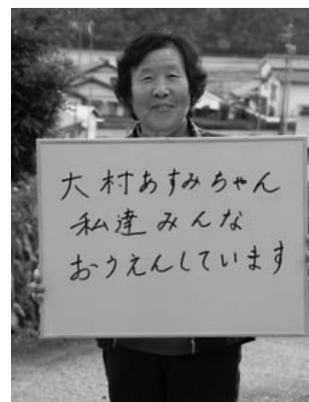 大村あすみちゃん
私達みんな
おうえんしています